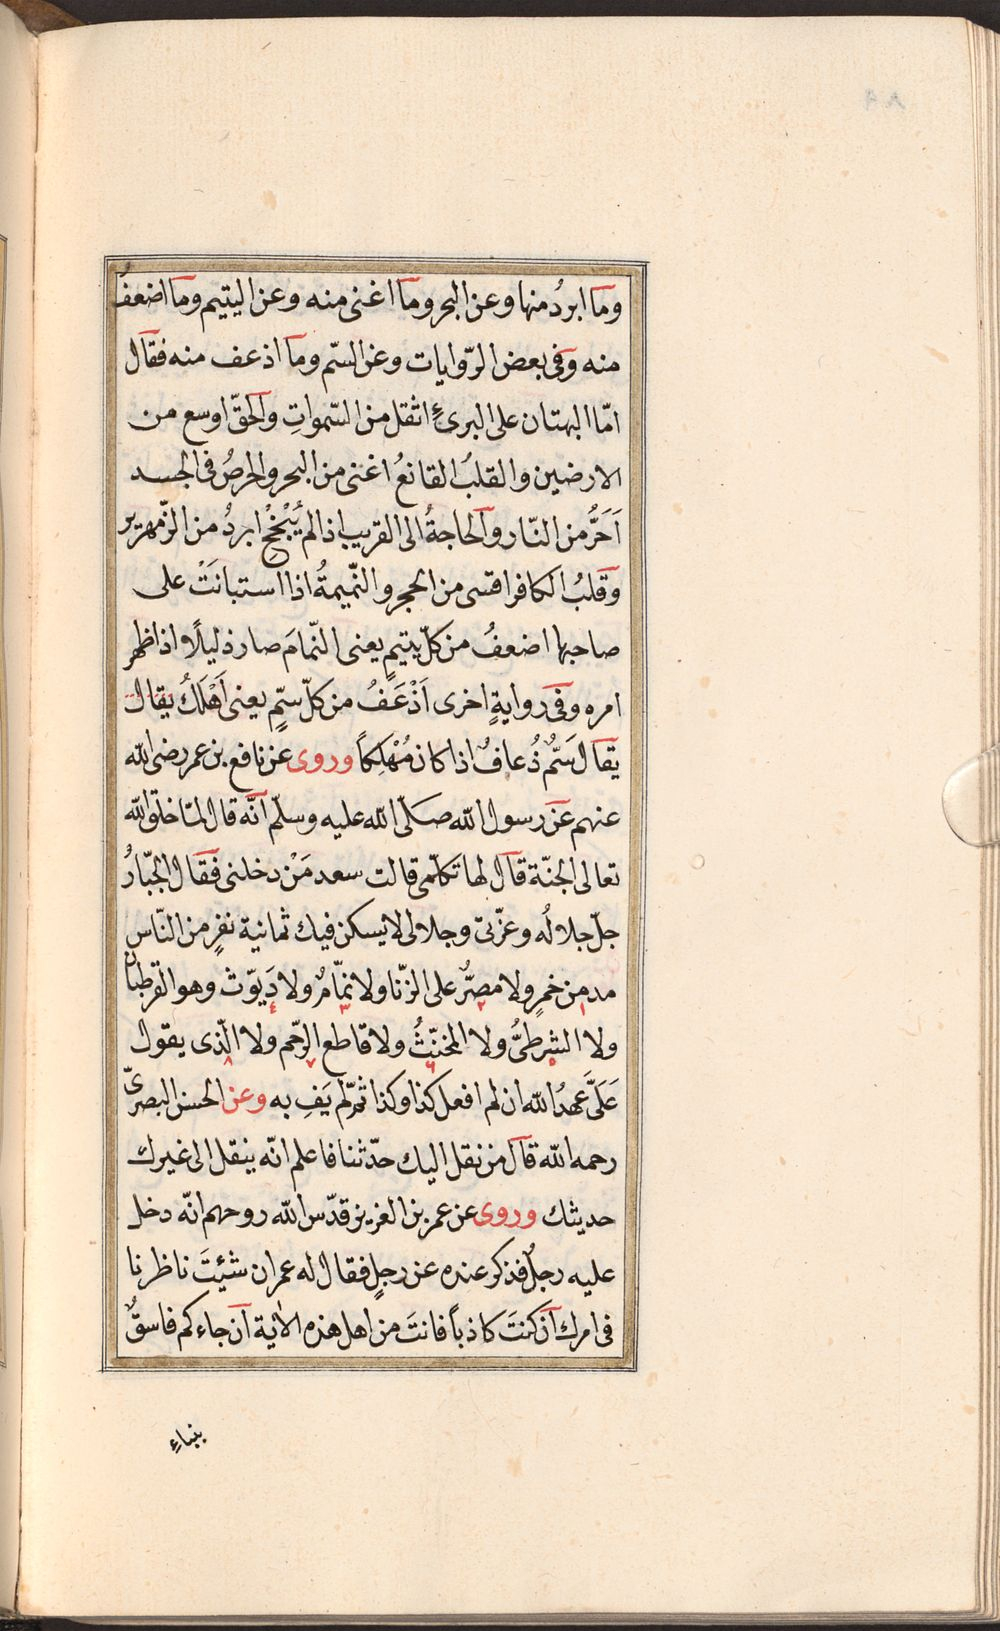 وما ابردُ منها وعن البحر وما اغنى منه وعن اليتيم وما اضعف
منه وفى بعض الرّوايات وعن السّم وما اذعف منه فقال
امّا البهتان على البرئِ اثقل من السّمواتِ والحقّ اوسع من
الارضين والقلبُ القانعُ اغنى من البحر والحرصُ فى الجسد
اَحَرُّ من النّار والحاجةُ الى القريب اذا لم يُنْجَحْ ابردُ من الزّمهرير
وقلبُ الكافر اقسى من الحجر والنّميمةُ اذا استبانَتْ على
صاحبها اضعفُ من كلّ يتيمٍ يعنى النّمامَ صار ذليلًا واذا ظهر
امره وفى روايةٍ اخرى اَذْعَفُ من كلّ سمٍّ يعنى اَهْلَكُ يقال
يقال سَمٌّ ذُعافٌ اذا كان مُهْلِكاً وروى عن نافع بن عمر رضى الله
عنهم عن رسول الله صلّى الله عليه وسلّم انّه قال لمّا خلق الله
تعالى الجنّة قال لها تكلّمى قالت سعد مَنْ دخلنى فقال الجبّارُ
جلّ جلالُه وعزّتى وجلالى لا يسكن فيك ثمانية نفرٍ من النّاس
مدمن خمرٍ ولا مصرٌّ على الزّنا ولا نمّامٌ ولا دَيّوث وهو القرطبان
ولا الشرطىُّ ولا المخنّثُ ولا قاطع الرّحم ولا الّذى يقول
عَلَىَّ عهدُ الله ان لم افعل كذا وكذا ثمّ لم يَفِ به وعن الحسن البصرىّ
رحمه الله قال من نقل اليك حدّثنا فاعلم انّه ينقل الى غيرك
حديثك وروى عن عمر بن العزيز قدّس الله روحهم انّه دخل
عليه رجلٌ فذكر عنده عن رجلٍ فقال له عمر ان شئِتَ ناظرنا
فى امرك ان كنتَ كاذباً فانتَ من اهل هذه الاٰية ان جاءكم فاسقٌ
بنباءٍ